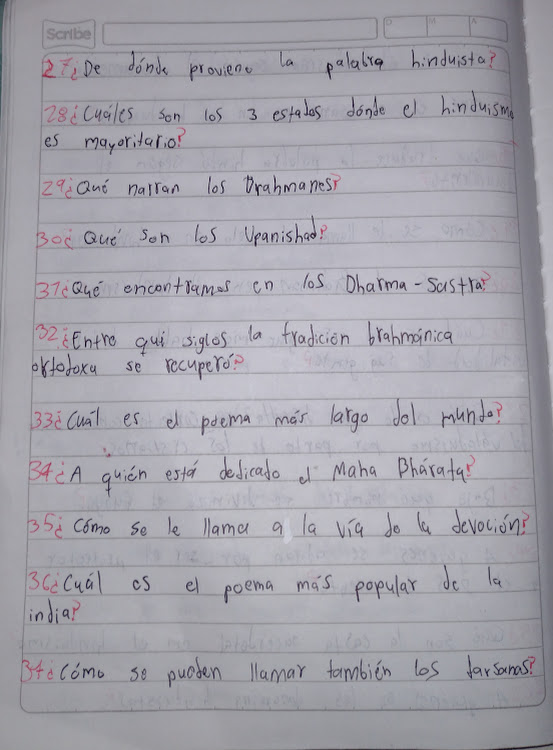 Scribe
D M A
27¿De dónde proviene la palabra hinduista?
28¿Cuáles son los 3 estados dónde el hinduismo
es mayoritario?
29¿Qué narran los Brahmanes?
30¿Qué son los Upanishad?
31¿Qué encontramos en los Dharma-Sastra?
32¿Entre qui siglos la tradición brahmánica
ortodoxa se recuperó?
33¿Cuál es el poema más largo del mundo?
34¿A quién está dedicado el Maha Bhárata?
35¿Cómo se le llama a la vía de la devoción?
36¿Cuál es el poema más popular de la
india?
37¿Cómo se pueden llamar también los darsanas?